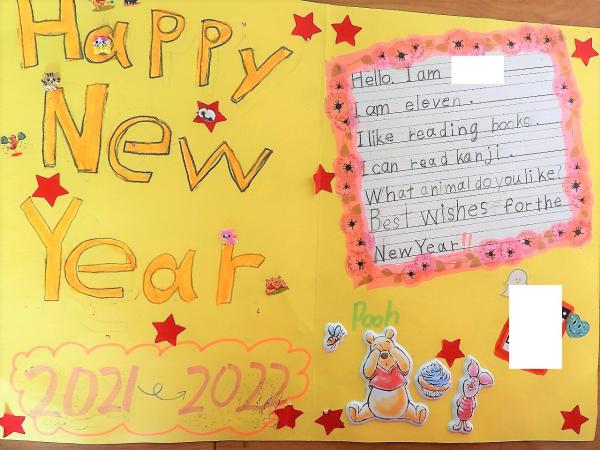 Happy
New
Year
2021 2022
Hello. I am
I am eleven.
I like reading books.
I can read kanji.
What animal do you like?
Best wishes for the
New Year!!
Pooh